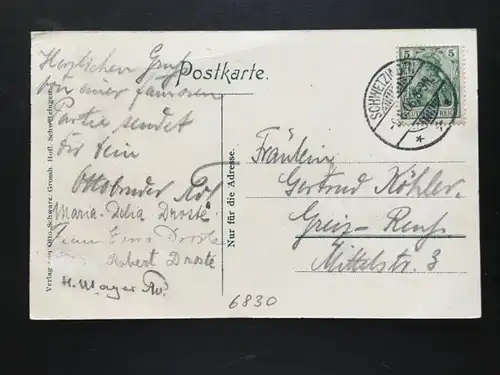 Postkarte.
Herzlichen Gruß
von einer famosen
Partie sendet
dir dein
Maria-Delia Droste
Robert Droste
H. Mayer
Verlag von Otto Schwarz, Grossh. Hofl. Schwetzingen.
Nur für die Adresse.
5 5
SCHWETZINGEN
Fräulein
Gertrud Köhler
Greiz-Reuß
Mittelstr. 3
6830